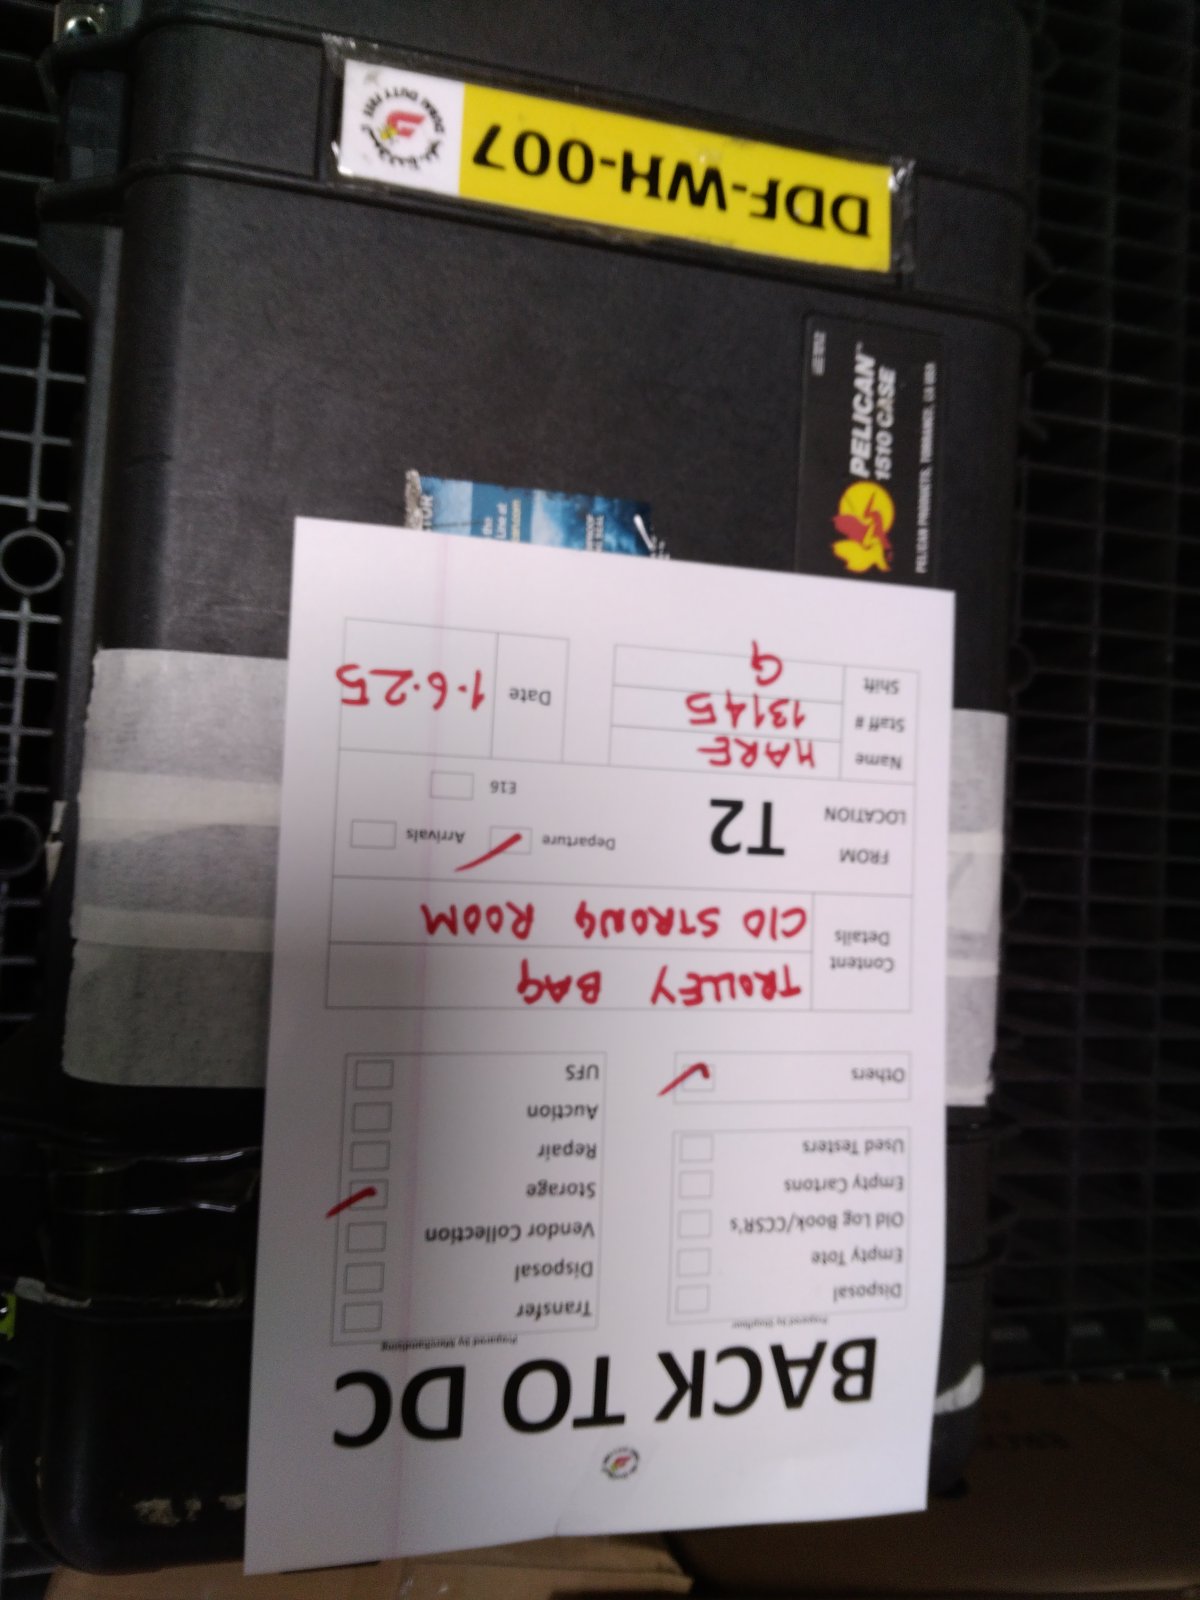 BACK TO DC
Prepared by Shopfloor
Prepared by Merchandising
Disposal
Empty Tote
Old Log Book/CCSR's
Empty Cartons
Used Testers
Others
Transfer
Disposal
Vendor Collection
Storage
Repair
Auction
UFS
Content Details
TROLLEY BAG
C/O STRONG ROOM
FROM LOCATION
T2
Departure
Arrivals
E16
Name HARE
Staff # 13145
Shift G
Date 1.6.25
PELICAN™
1510 CASE
PELICAN PRODUCTS, TORRANCE, CA USA
DDF-WH-007
DUBAI DUTY FREE